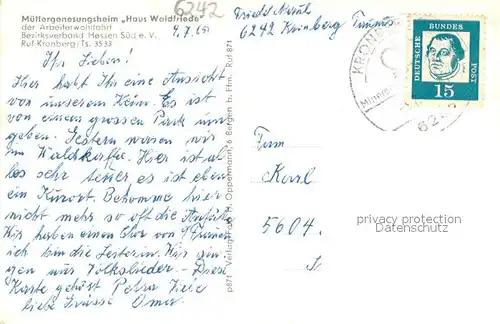 Müttergenesungsheim „Haus Waldfriede"
der Arbeiterwohlfahrt
Bezirksverband Hessen Süd e. V.
Ruf Kronberg/Ts. 3533
6242
Ihr Lieben!
Hier habt Ihr eine Ansicht
von unserem Heim. Es ist
von einem grossen Park um
geben. Gestern waren wir
im Waldkaffee. Hier ist al
les sehr teuer es ist eben
ein Kurort. Bekomme hier
nicht mehr so oft die Anfälle
Wir haben einen Chor von 9 Frauen
ich bin die Leiterin. Wir sin
gen nur Volkslieder. Diese
Karte gehört Petra Viele
liebe Grüsse Oma.
p871 Verlag H. Oppermann, 6 Bergen b. Ffm. Ruf 871
6242 Kronberg Taunus
KRONB
DEUTSCHE
BUNDES
POST
15
Fam
Karl
5604
privacy protection
Datenschutz